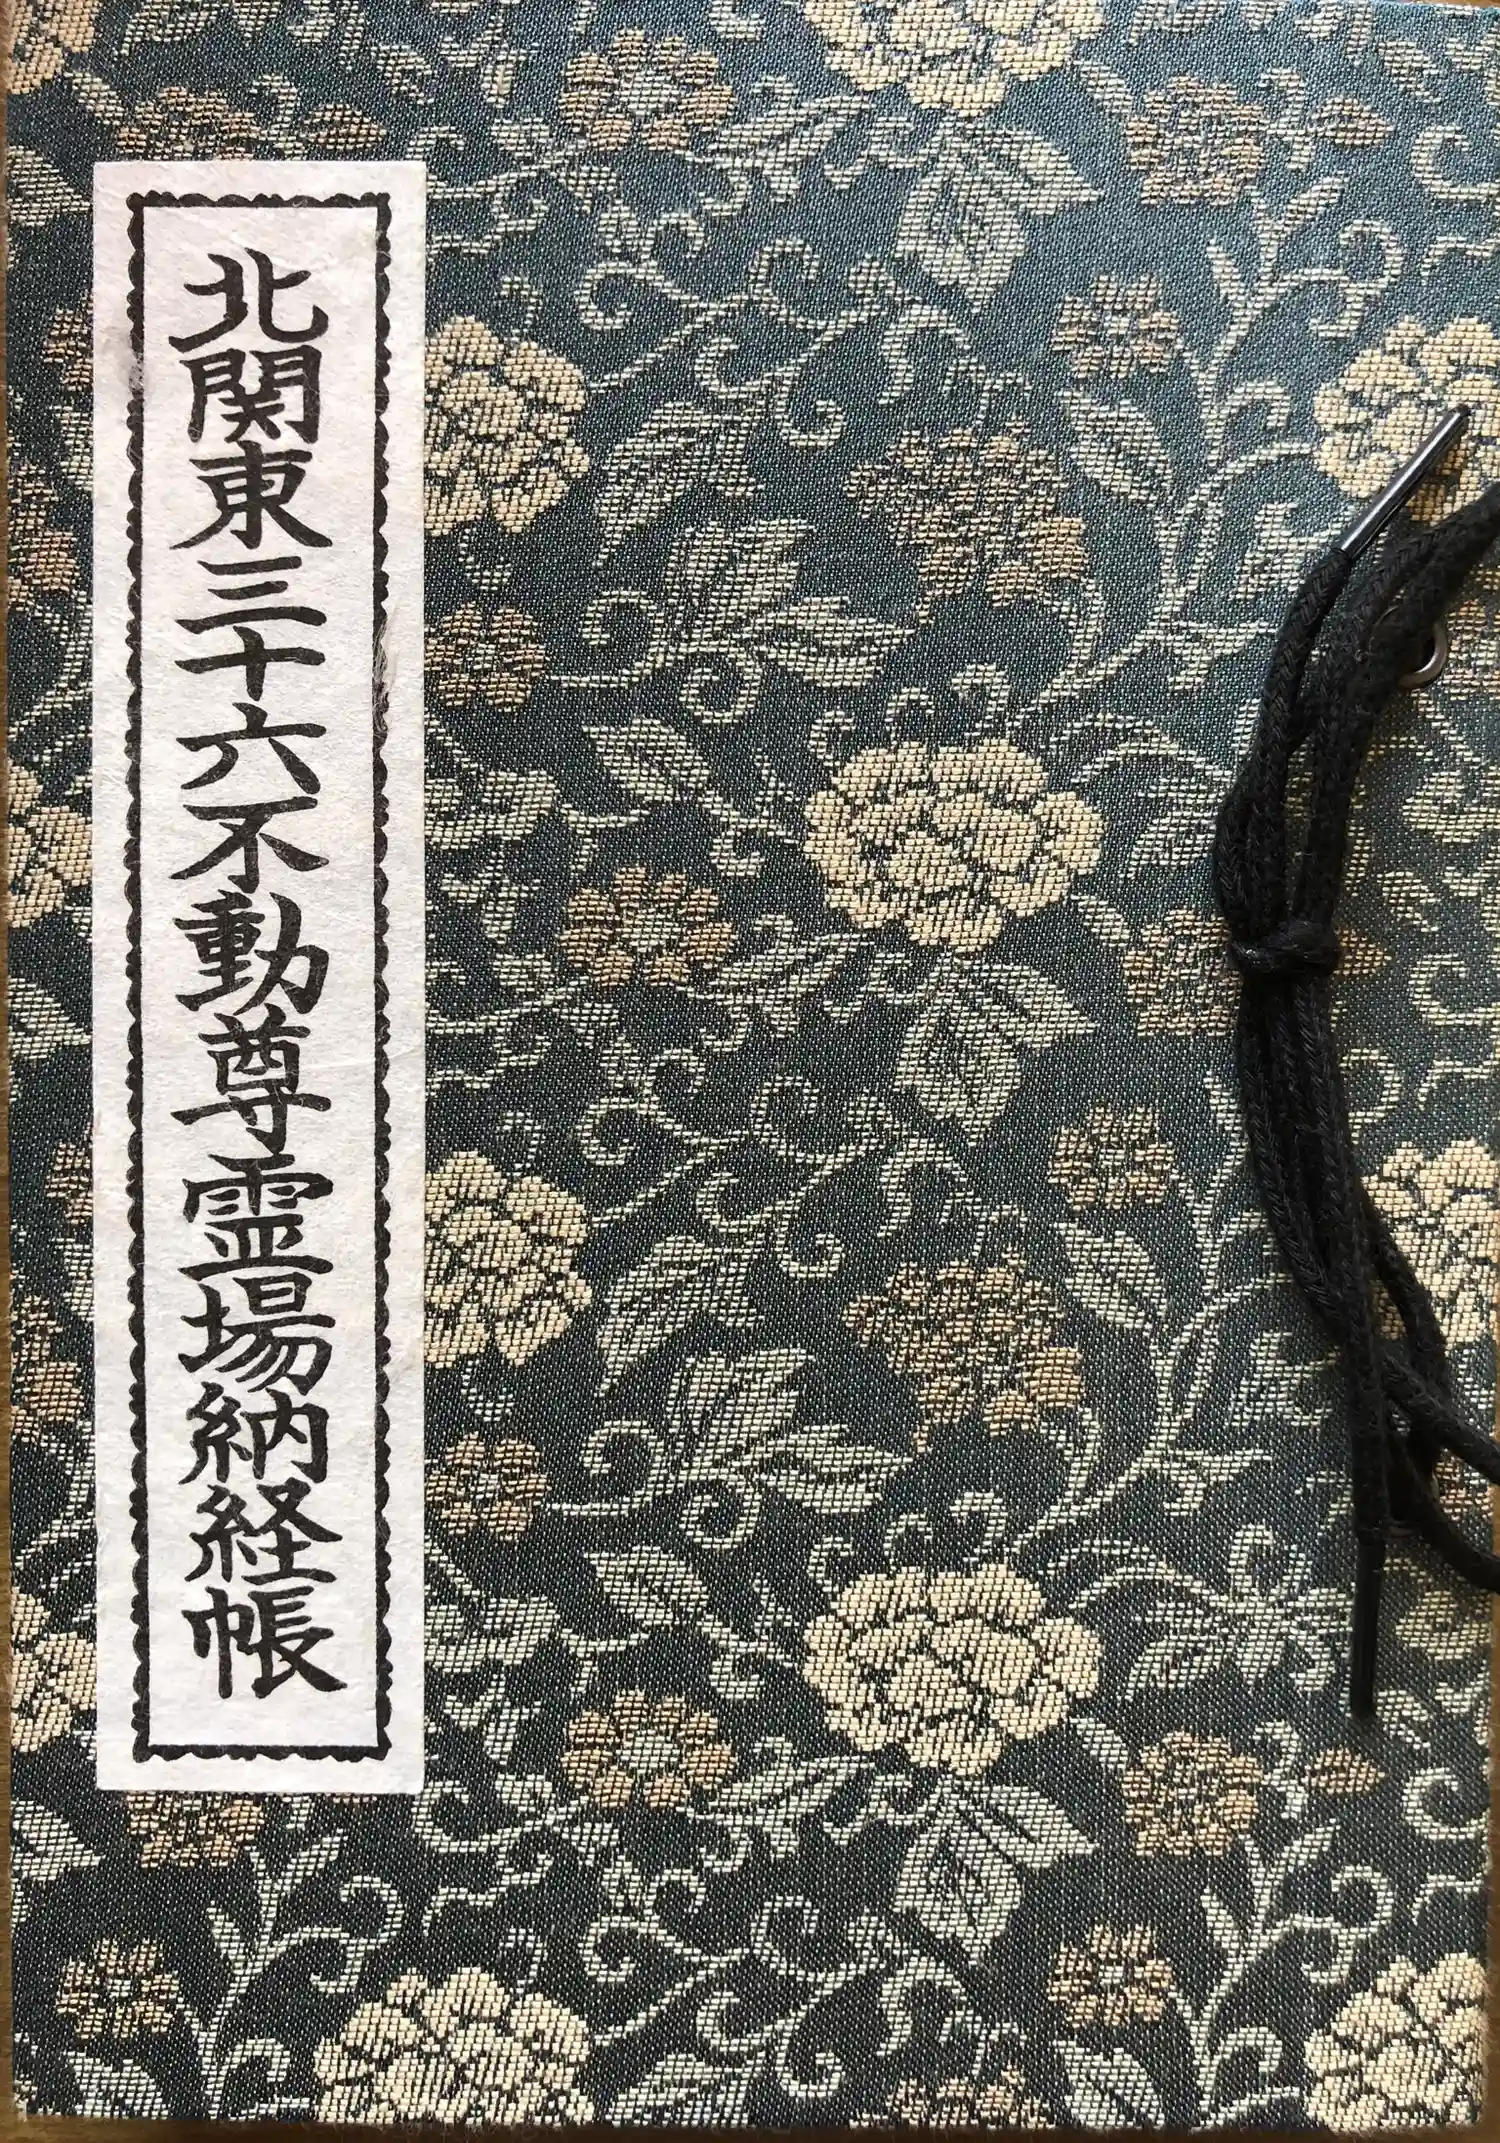 北関東三十六不動尊霊場納経帳